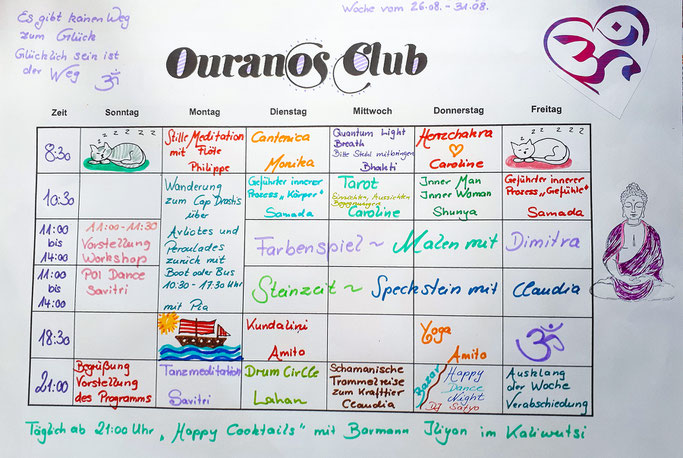 Es gibt keinen Weg
zum Glück
Glücklich sein ist
der Weg
Woche vom 26.08. - 31.08.
Ouranos Club
Zeit Sonntag Montag Dienstag Mittwoch Donnerstag Freitag
8:30
z z z z z
Stille Meditation
mit Flöte
Philippe
Cantenica
Monika
Quantum Light
Breath
Bitte Stuhl mitbringen
Bhakti
Herzchakra
Caroline
z z z z z
10:30
Wanderung
zum Cap Drastis
über
Avliotes und
Peroulades
zurück mit
Boot oder Bus
10:30 - 17:30 Uhr
mit Pia
Geführter innerer
Prozess „Körper"
Samada
Tarot
Einsichten, Aussichten
Begegnungen
Caroline
Inner Man
Inner Woman
Shunya
Geführter innerer
Prozess „Gefühle"
Samada
11:00
bis
14:00
11:00 - 11:30
Vorstellung
Workshop
Farbenspiel ~ Malen mit Dimitra
11:00
bis
14:00
POI Dance
Savitri
Steinzeit ~ Speckstein mit Claudia
18:30
Kundalini
Amito
Yoga
Amito
21:00
Begrüßung
Vorstellung
des Programms
Tanzmeditation
Savitri
Drum Circle
Lahan
Schamanische
Trommelreise
zum Krafttier
Claudia
Bazar
Happy
Dance
Night
DJ Satyo
Ausklang
der Woche
Verabschiedung
Täglich ab 21:00 Uhr „Happy Cocktails" mit Barmann Iliyan im Kaliwutsi